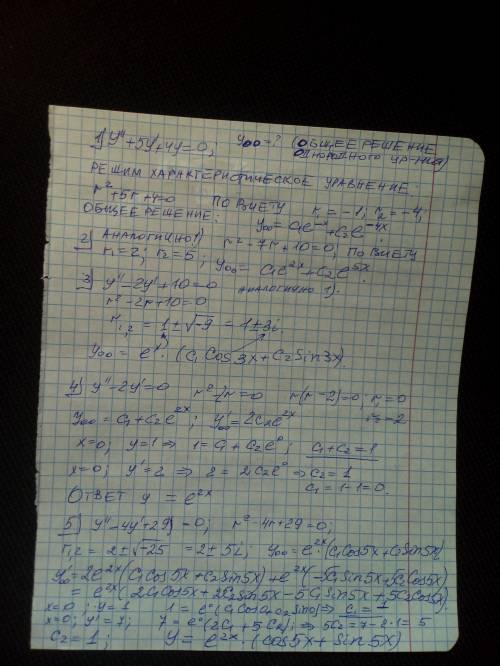 1) y'' + 5y' + 4y = 0; y₀₀ = ? (ОБЩЕЕ РЕШЕНИЕ
ОДНОРОДНОГО УР-НИЯ)
РЕШИМ ХАРАКТЕРИСТИЧЕСКОЕ УРАВНЕНИЕ:
r² + 5r + 4 = 0 ПО ВИЕТУ r₁ = -1; r₂ = -4;
ОБЩЕЕ РЕШЕНИЕ: y₀₀ = C₁e⁻ˣ + C₂e⁻⁴ˣ.
2) АНАЛОГИЧНО 1) r² - 7r + 10 = 0, ПО ВИЕТУ
r₁ = 2; r₂ = 5; y₀₀ = C₁e²ˣ + C₂e⁵ˣ
3) y'' - 2y' + 10 = 0 АНАЛОГИЧНО 1).
r² - 2r + 10 = 0
r₁,₂ = 1 ± √-9 = 1 ± 3i.
y₀₀ = eˣ · (C₁ Cos 3x + C₂ Sin 3x).
4) y'' - 2y' = 0 r² - 2r = 0 r(r - 2) = 0; r₁ = 0
r₂ = 2
y₀₀ = C₁ + C₂e²ˣ; y'₀₀ = 2C₂e²ˣ
x = 0; y = 1 ⇒ 1 = C₁ + C₂e⁰; C₁ + C₂ = 1
x = 0; y' = 2 ⇒ 2 = 2C₂e⁰ ⇒ C₂ = 1
C₁ = 1 - 1 = 0.
ОТВЕТ y = e²ˣ
5) y'' - 4y' + 29y = 0; r² - 4r + 29 = 0;
r₁,₂ = 2 ± √-25 = 2 ± 5i; y₀₀ = e²ˣ · (C₁Cos5x + C₂Sin5x)
y'₀₀ = 2e²ˣ(C₁Cos5x + C₂Sin5x) + e²ˣ(-5C₁Sin5x + 5C₂Cos5x)
= e²ˣ(2C₁Cos5x + 2C₂Sin5x - 5C₁Sin5x + 5C₂Cos5x).
x = 0; y = 1 1 = e⁰(C₁Cos0 + C₂Sin0) ⇒ C₁ = 1
x = 0; y' = 7; 7 = e⁰(2C₁ + 5C₂); ⇒ 5C₂ = 7 - 2·1 = 5
C₂ = 1; y = e²ˣ · (cos5x + sin5x)